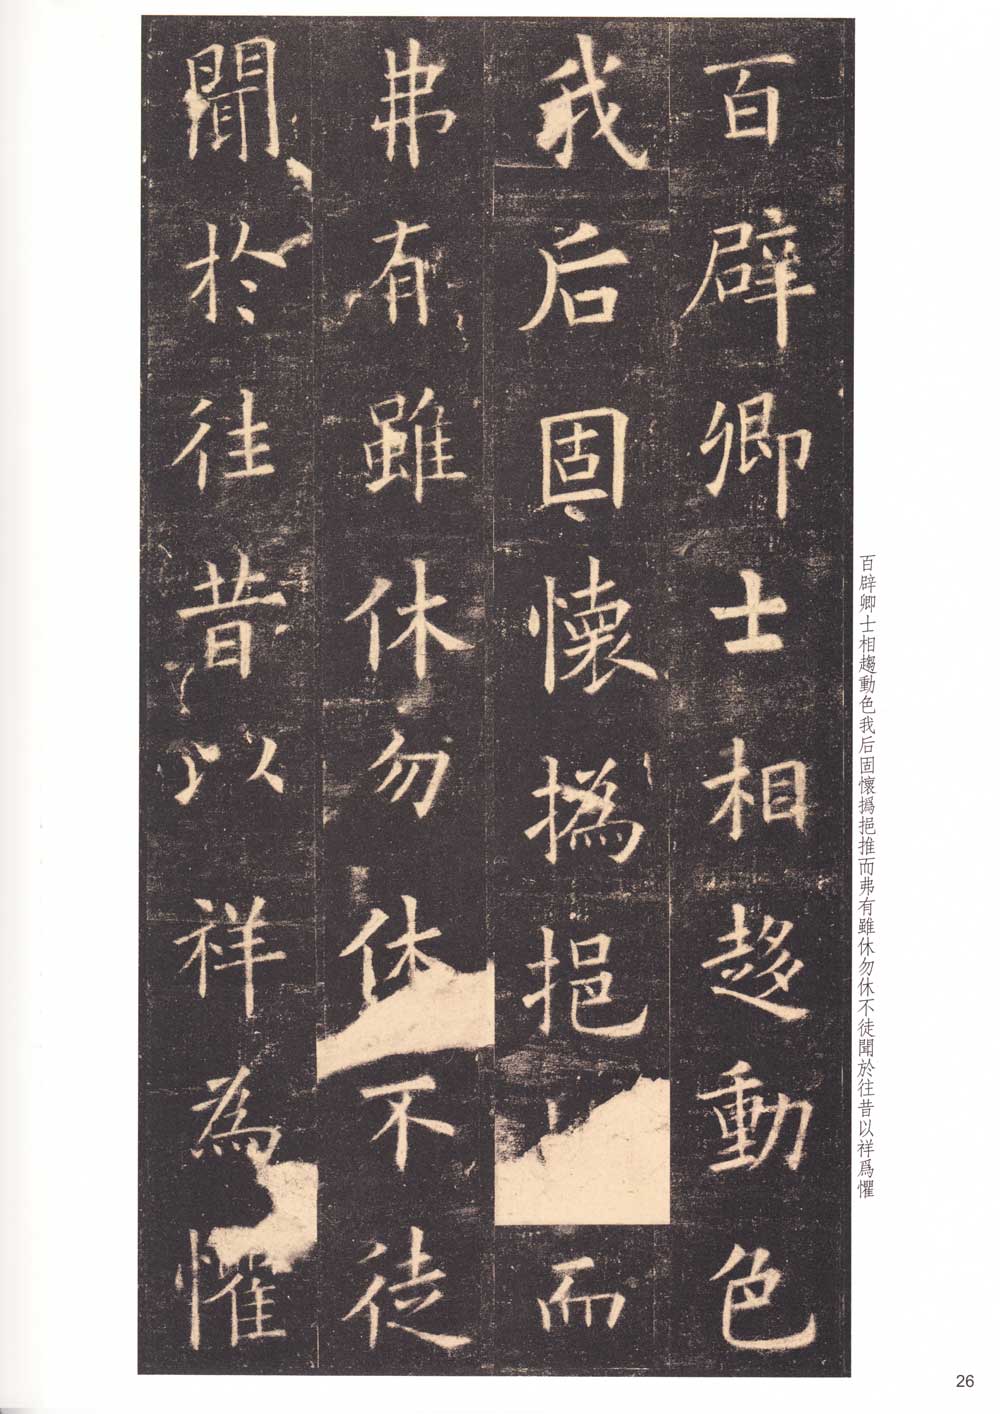 百辟卿士相趍動色
我后固懷撝挹而
弗有雖休勿休不徒
聞於往昔以祥為懼
百辟卿士相趨動色我后固懷撝挹推而弗有雖休勿休不徒聞於往昔以祥爲懼
26